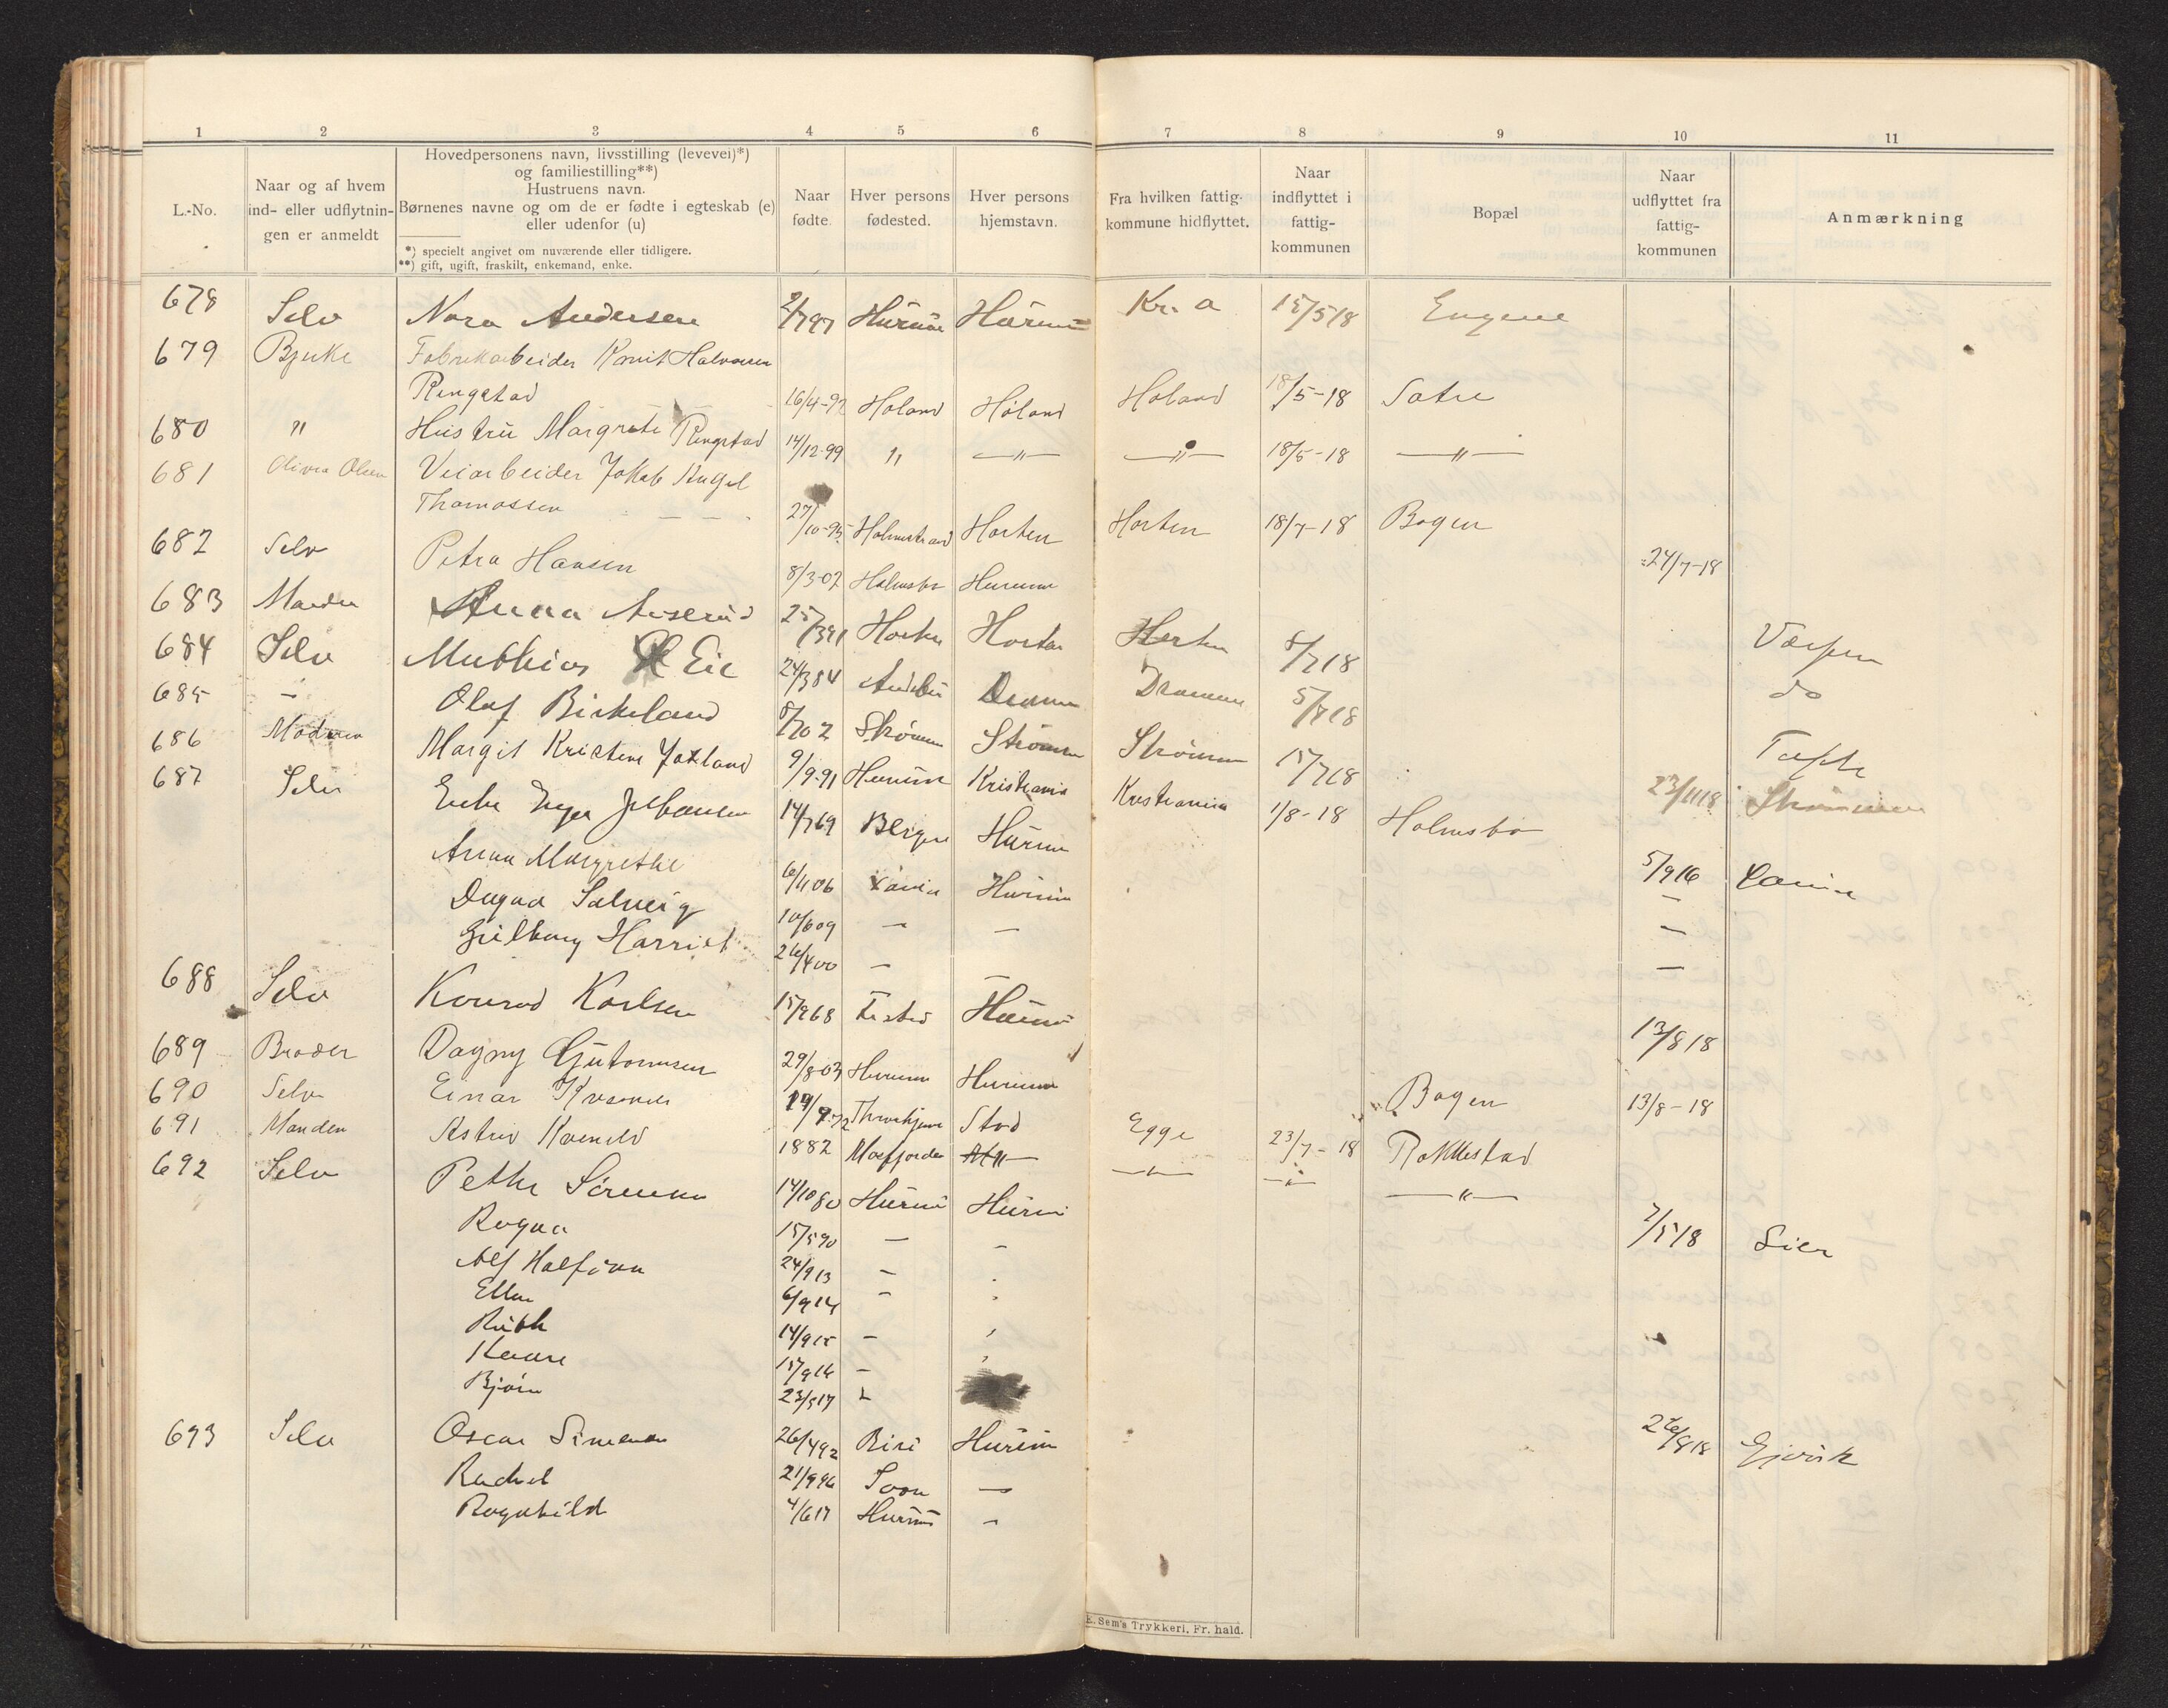 1 2 3 4 5 6 7 8 9 10 11
L.-No.
Naar og af hvem
ind- eller udflytnin-
gen er anmeldt
Hovedpersonens navn, livsstilling (levevei)*)
og familiestilling**)
Hustruens navn.
Børnenes navne og om de er fødte i egteskab (e)
eller udenfor (u)
*) specielt angivet om nuværende eller tidligere.
**) gift, ugift, fraskilt, enkemand, enke.
Naar
fødte
Hver persons
fødested.
Hver persons
hjemstavn.
Fra hvilken fattig-
kommune hidflyttet.
Naar
indflyttet i
fattig-
kommunen
Bopæl
Naar
udflyttet fra
fattig-
kommunen
Anmærkning
678 Selv Nora Andersen 2/7 97 Hurum Hurum Kr. a 15/5 18 Engene
679 Bjerke Fabrikarbeider Halvorsen
Ringstad 16/4-92 Høland Høland Høland 18/5-18 Sætre
680 " Hustru Margrete Ringstad 14/12-99 " —"— —"— 18/5-18 —"—
681 Olivia Olsen Veiarbeider Jakob
Thomassen 27/10-95 Holmestrand Horten Horten 18/7-18 Bogen
682 Selv Petra Hansen 8/3-02 Holmsbo Hurum 24/7-18
683 Anna 25/3 91 Horten Horten Horten 8/7 18
684 Selv Mathias Eie 24/3 84 Drammen 5/7 18 do
685 — Olaf Birkeland 8/7 02 Strømm Strømm Strømm 15/7 18 Tofte
686 Moderen Margit Kristine 9/9-91 Hurum Kristiania Kristiania 1/8-18 Holmsbo 23/11 18
687 Selv Enke Inga Johansen 14/7 69 Bergen Hurum 5/9 16
Anna Margrethe 6/11 06 Hurum —
Dagna Solveig 10/6 09 — — —
Harriet 26/4 00 — — —
688 Selv Konrad Karlsen 15/9 68 Hurum 13/8 18
689 Broder Dagny Guttormsen 29/8-03 Hurum Hurum Bogen 13/8-18
690 Selv Einar 19/9-72 Stod Egge 23/7-18 Rokkestad
691 Manden Astrid 1882 —"— —"— —"— —"—
692 Selv Petter Sørensen 14/10 80 Hurum Hurum 7/5 18 Lier
Ragna 15/5 90 — —
Alf 24/9 13 —
Ellen 6/9 14 —
Ruth 14/9 15 —
Kaare 15/9 16 —
Bjørn 23/5 17
693 Selv Oscar Simensen 26/4 92 Biri Hurum 26/8 18 Gjøvik
Rachel 21/9 96 Soon —
Ragnhild 4/6 17 Hurum —
E. Sem's Trykkeri, Fr. hald.